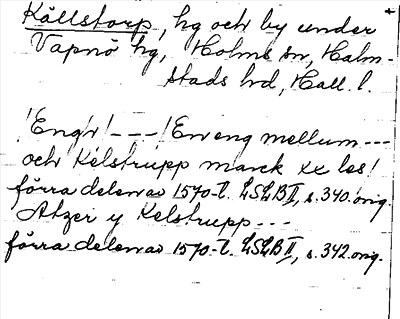 Källstorp, hg och by under
Vapnö hg, Holms sn, Halm-
stads hd, Hall. l.
! Engr! --- ! En eng mellum ---
och Kelstrupp marck xx les!
förra delen av 1570-t. LSLB II, s. 340. orig.
Atzer y Kelstrupp ---
förra delen av 1570-t. LSLB II, s. 342. orig.